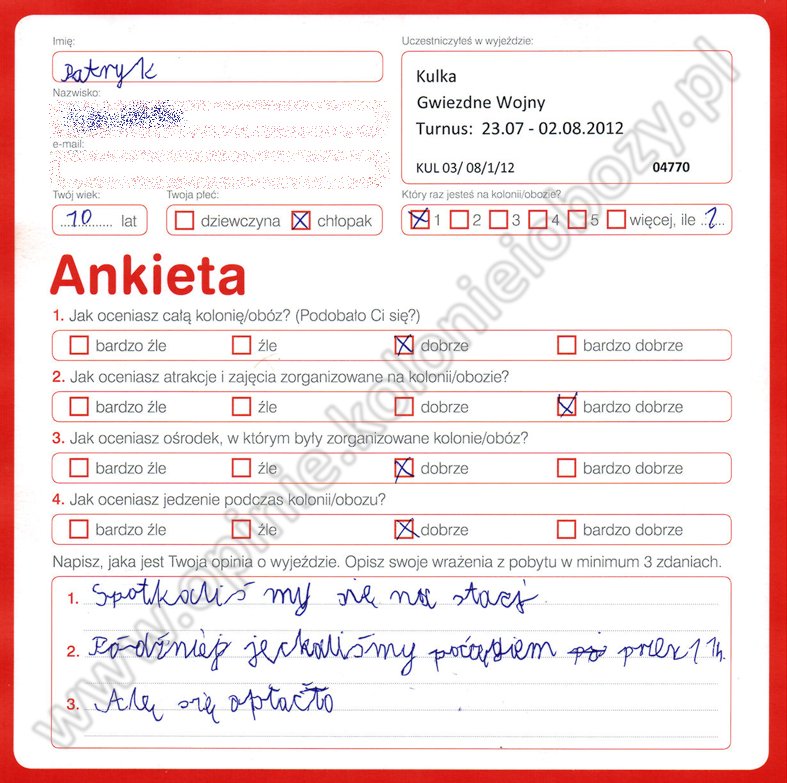 Imię:
Patryk
Nazwisko:
e-mail:
Twój wiek:
10 lat
Twoja płeć:
dziewczyna chłopak
Uczestniczyłeś w wyjeździe:
Kulka
Gwiezdne Wojny
Turnus: 23.07 - 02.08.2012
KUL 03/ 08/1/12 04770
Który raz jesteś na kolonii/obozie?
1 2 3 4 5 więcej, ile
Ankieta
1. Jak oceniasz całą kolonię/obóz? (Podobało Ci się?)
bardzo źle źle dobrze bardzo dobrze
2. Jak oceniasz atrakcje i zajęcia zorganizowane na kolonii/obozie?
bardzo źle źle dobrze bardzo dobrze
3. Jak oceniasz ośrodek, w którym były zorganizowane kolonie/obóz?
bardzo źle źle dobrze bardzo dobrze
4. Jak oceniasz jedzenie podczas kolonii/obozu?
bardzo źle źle dobrze bardzo dobrze
Napisz, jaka jest Twoja opinia o wyjeździe. Opisz swoje wrażenia z pobytu w minimum 3 zdaniach.
1. Spotkaliś my się na stacj
2. jeckaliśmy 11h.
3. Alę się opłaciło
www.opinie.kolonieiobozy.pl